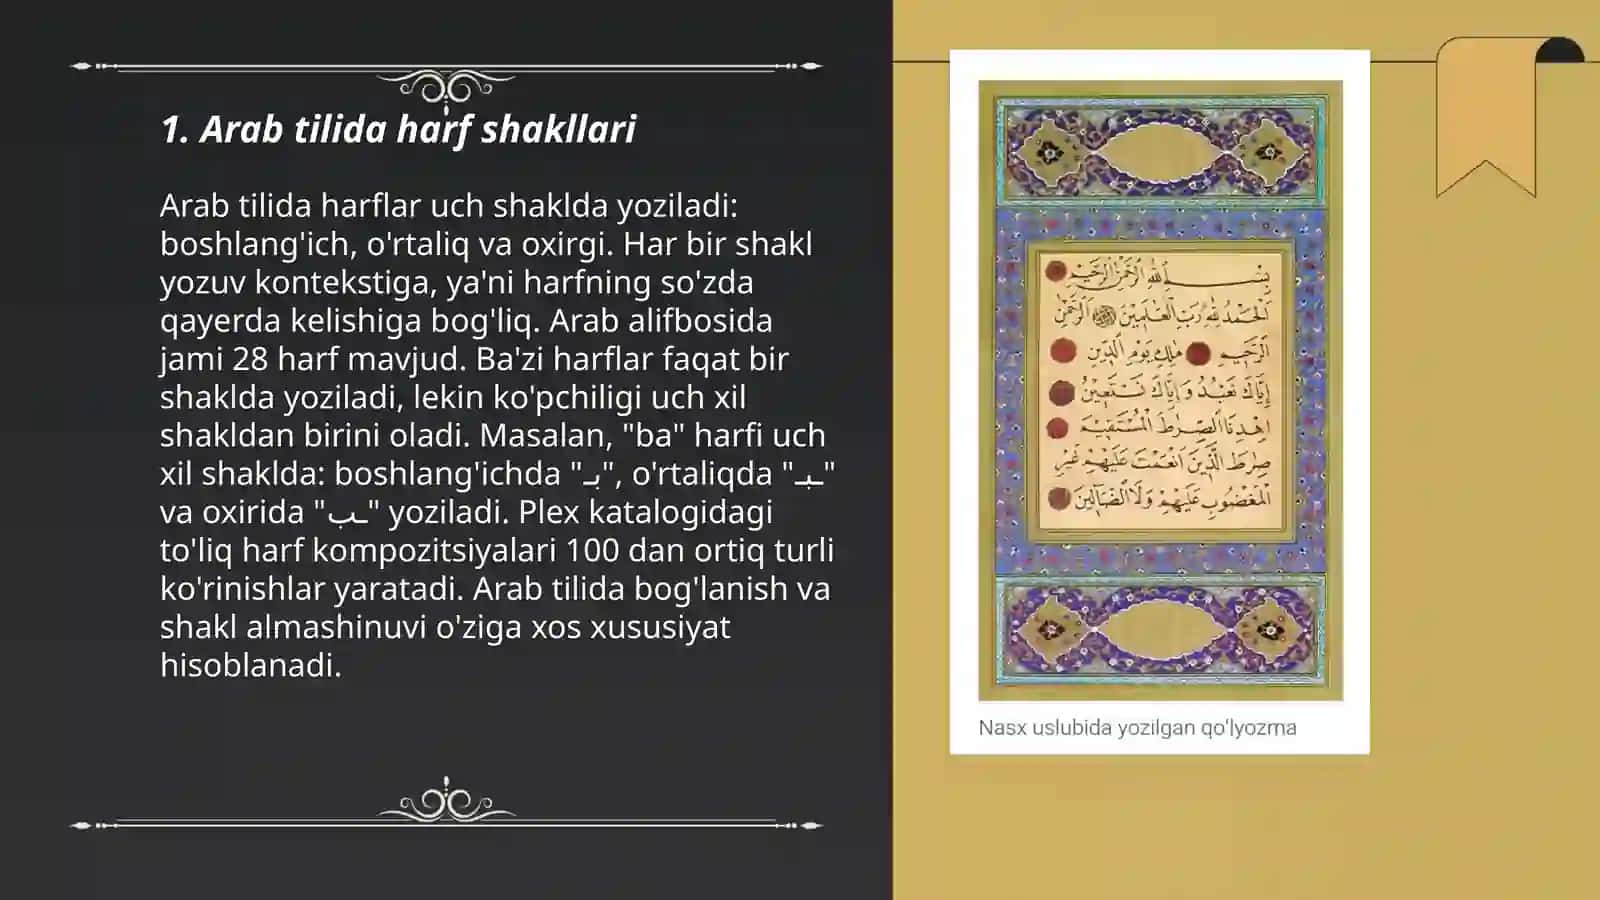 1. Arab tilida harf shakllari
Arab tilida harflar uch shaklda yoziladi:
boshlang'ich, o'rtaliq va oxirgi. Har bir shakl
yozuv kontekstiga, ya'ni harfning so'zda
qayerda kelishiga bog'liq. Arab alifbosida
jami 28 harf mavjud. Ba'zi harflar faqat bir
shaklda yoziladi, lekin ko'pchiligi uch xil
shakldan birini oladi. Masalan, "ba" harfi uch
xil shaklda: boshlang'ichda "بـ", o'rtaliqda "ـبـ"
va oxirida "ـب" yoziladi. Plex katalogidagi
to'liq harf kompozitsiyalari 100 dan ortiq turli
ko'rinishlar yaratadi. Arab tilida bog'lanish va
shakl almashinuvi o'ziga xos xususiyat
hisoblanadi.
بِسْمِ اللهِ الرَّحْمٰنِ الرَّحِيمِ
اَلْحَمْدُ لِلّٰهِ رَبِّ الْعَالَمِينَ الرَّحْمٰنِ
الرَّحِيمِ مَالِكِ يَوْمِ الدِّينِ
إِيَّاكَ نَعْبُدُ وَإِيَّاكَ نَسْتَعِينُ
اِهْدِنَا الصِّرَاطَ الْمُسْتَقِيمَ
صِرَاطَ الَّذِينَ اَنْعَمْتَ عَلَيْهِمْ غَيْرِ
الْمَغْضُوبِ عَلَيْهِمْ وَلَا الضَّالِّينَ
Nasx uslubida yozilgan qoʻlyozma